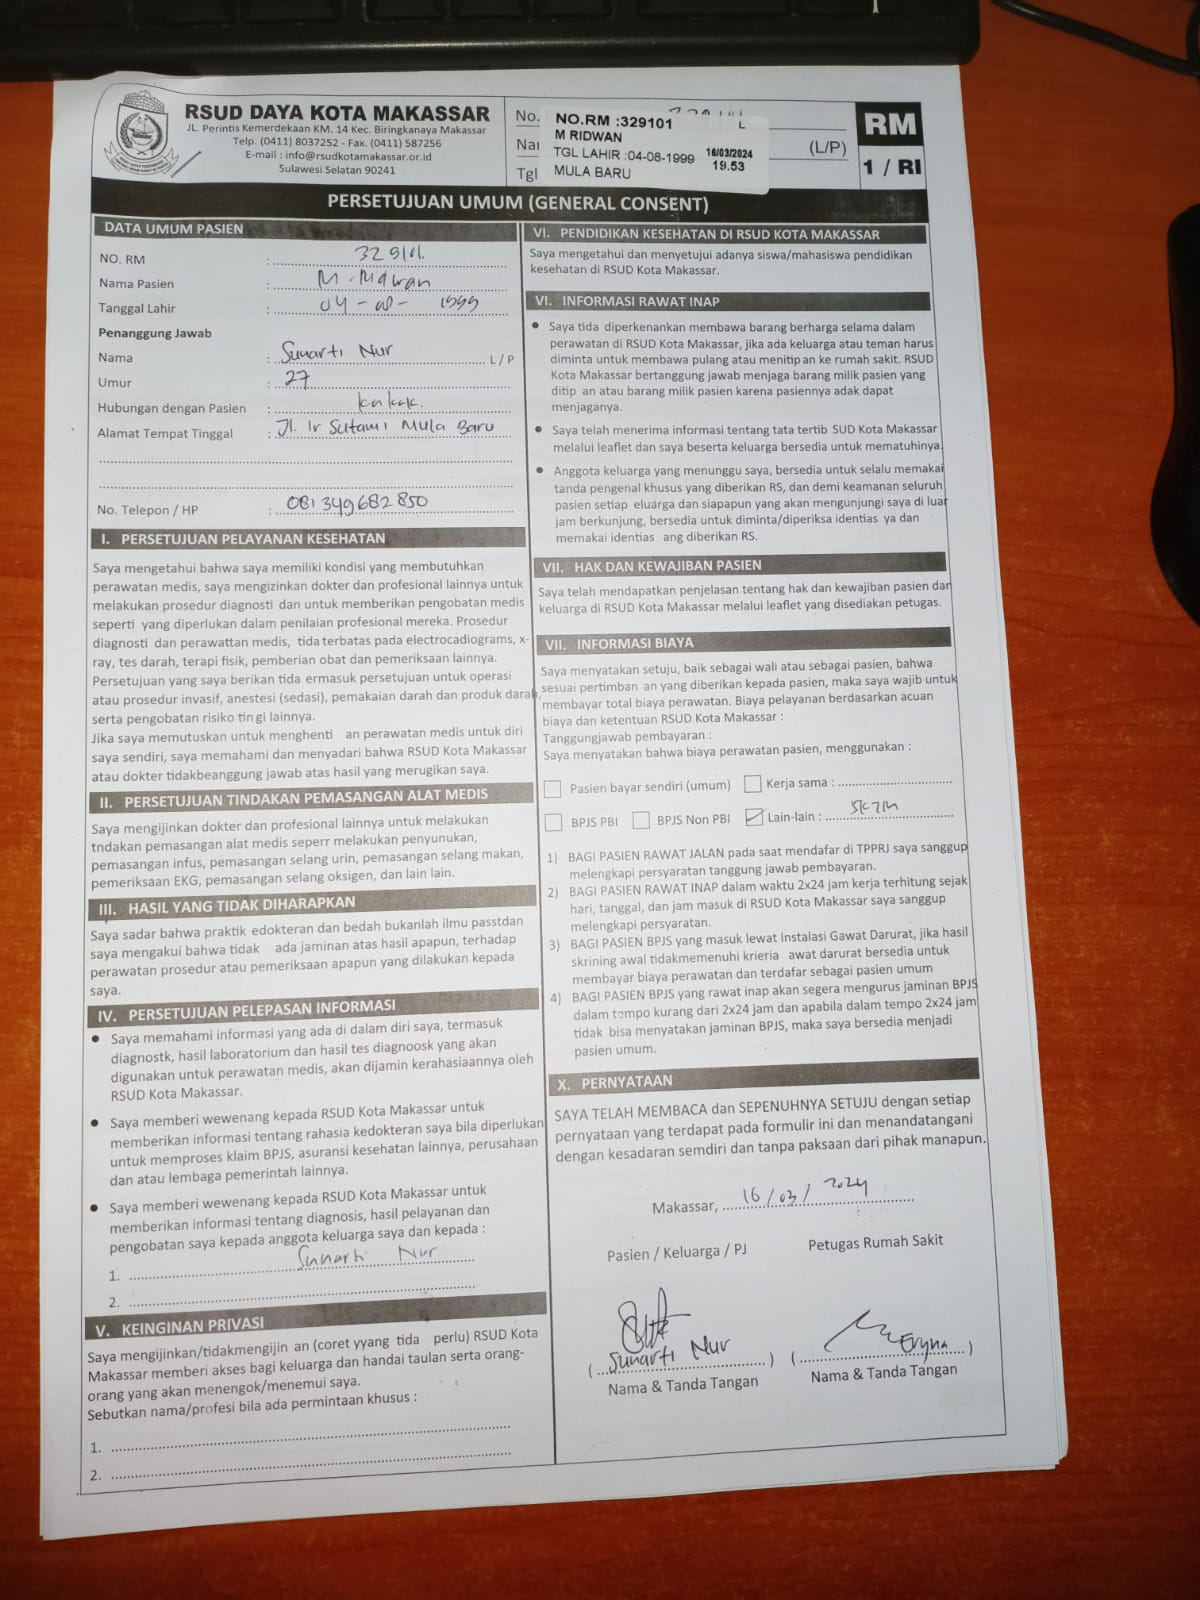 RSUD DAYA KOTA MAKASSAR
JL. Perintis Kemerdekaan KM. 14 Kec. Biringkanaya Makassar
Telp. (0411) 8037252 - Fax. (0411) 587256
E-mail : info@rsudkotamakassar.or.id
Sulawesi Selatan 90241
No.
Nar
Tgl
NO.RM :329101
L
M RIDWAN
TGL LAHIR :04-08-1999
16/03/2024
19.53
MULA BARU
(L/P)
RM
1 / RI
PERSETUJUAN UMUM (GENERAL CONSENT)
DATA UMUM PASIEN
NO. RM : 329101.
Nama Pasien : M. Ridwan
Tanggal Lahir : 04 - 08 - 1999
Penanggung Jawab
Nama : Sunarti Nur L / P
Umur : 27
Hubungan dengan Pasien : kakak.
Alamat Tempat Tinggal : Jl. Ir Sutami Mula Baru
No. Telepon / HP : 081349682850
I. PERSETUJUAN PELAYANAN KESEHATAN
Saya mengetahui bahwa saya memiliki kondisi yang membutuhkan
perawatan medis, saya mengizinkan dokter dan profesional lainnya untuk
melakukan prosedur diagnosti dan untuk memberikan pengobatan medis
seperti yang diperlukan dalam penilaian profesional mereka. Prosedur
diagnosti dan perawattan medis, tida terbatas pada electrocadiograms, x-
ray, tes darah, terapi fisik, pemberian obat dan pemeriksaan lainnya.
Persetujuan yang saya berikan tida ermasuk persetujuan untuk operasi
atau prosedur invasif, anestesi (sedasi), pemakaian darah dan produk darah,
serta pengobatan risiko tin gi lainnya.
Jika saya memutuskan untuk menghenti an perawatan medis untuk diri
saya sendiri, saya memahami dan menyadari bahwa RSUD Kota Makassar
atau dokter tidakbeanggung jawab atas hasil yang merugikan saya.
II. PERSETUJUAN TINDAKAN PEMASANGAN ALAT MEDIS
Saya mengijinkan dokter dan profesional lainnya untuk melakukan
tndakan pemasangan alat medis seperr melakukan penyunukan,
pemasangan infus, pemasangan selang urin, pemasangan selang makan,
pemeriksaan EKG, pemasangan selang oksigen, dan lain lain.
III. HASIL YANG TIDAK DIHARAPKAN
Saya sadar bahwa praktik edokteran dan bedah bukanlah ilmu passtdan
saya mengakui bahwa tidak ada jaminan atas hasil apapun, terhadap
perawatan prosedur atau pemeriksaan apapun yang dilakukan kepada
saya.
IV. PERSETUJUAN PELEPASAN INFORMASI
● Saya memahami informasi yang ada di dalam diri saya, termasuk
diagnostk, hasil laboratorium dan hasil tes diagnoosk yang akan
digunakan untuk perawatan medis, akan dijamin kerahasiaannya oleh
RSUD Kota Makassar.
● Saya memberi wewenang kepada RSUD Kota Makassar untuk
memberikan informasi tentang rahasia kedokteran saya bila diperlukan
untuk memproses klaim BPJS, asuransi kesehatan lainnya, perusahaan
dan atau lembaga pemerintah lainnya.
● Saya memberi wewenang kepada RSUD Kota Makassar untuk
memberikan informasi tentang diagnosis, hasil pelayanan dan
pengobatan saya kepada anggota keluarga saya dan kepada :
1. Sunarti Nur
2.
V. KEINGINAN PRIVASI
Saya mengijinkan/tidakmengijin an (coret yyang tida perlu) RSUD Kota
Makassar memberi akses bagi keluarga dan handai taulan serta orang-
orang yang akan menengok/menemui saya.
Sebutkan nama/profesi bila ada permintaan khusus :
1.
2.
VI. PENDIDIKAN KESEHATAN DI RSUD KOTA MAKASSAR
Saya mengetahui dan menyetujui adanya siswa/mahasiswa pendidikan
kesehatan di RSUD Kota Makassar.
VI. INFORMASI RAWAT INAP
● Saya tida diperkenankan membawa barang berharga selama dalam
perawatan di RSUD Kota Makassar, jika ada keluarga atau teman harus
diminta untuk membawa pulang atau menitip an ke rumah sakit. RSUD
Kota Makassar bertanggung jawab menjaga barang milik pasien yang
ditip an atau barang milik pasien karena pasiennya adak dapat
menjaganya.
● Saya telah menerima informasi tentang tata tertib SUD Kota Makassar
melalui leaflet dan saya beserta keluarga bersedia untuk mematuhinya.
● Anggota keluarga yang menunggu saya, bersedia untuk selalu memakai
tanda pengenal khusus yang diberikan RS, dan demi keamanan seluruh
pasien setiap eluarga dan siapapun yang akan mengunjungi saya di luar
jam berkunjung, bersedia untuk diminta/diperiksa identias ya dan
memakai identias ang diberikan RS.
VII. HAK DAN KEWAJIBAN PASIEN
Saya telah mendapatkan penjelasan tentang hak dan kewajiban pasien dan
keluarga di RSUD Kota Makassar melalui leaflet yang disediakan petugas.
VII. INFORMASI BIAYA
Saya menyatakan setuju, baik sebagai wali atau sebagai pasien, bahwa
sesuai pertimban an yang diberikan kepada pasien, maka saya wajib untuk
membayar total biaya perawatan. Biaya pelayanan berdasarkan acuan
biaya dan ketentuan RSUD Kota Makassar :
Tanggungjawab pembayaran :
Saya menyatakan bahwa biaya perawatan pasien, menggunakan :
Pasien bayar sendiri (umum) Kerja sama :
BPJS PBI BPJS Non PBI Lain-lain :
1) BAGI PASIEN RAWAT JALAN pada saat mendafar di TPPRJ saya sanggup
melengkapi persyaratan tanggung jawab pembayaran.
2) BAGI PASIEN RAWAT INAP dalam waktu 2x24 jam kerja terhitung sejak
hari, tanggal, dan jam masuk di RSUD Kota Makassar saya sanggup
melengkapi persyaratan.
3) BAGI PASIEN BPJS yang masuk lewat Instalasi Gawat Darurat, jika hasil
skrining awal tidakmemenuhi krieria awat darurat bersedia untuk
membayar biaya perawatan dan terdafar sebagai pasien umum
4) BAGI PASIEN BPJS yang rawat inap akan segera mengurus jaminan BPJS
dalam tempo kurang dari 2x24 jam dan apabila dalam tempo 2x24 jam
tidak bisa menyatakan jaminan BPJS, maka saya bersedia menjadi
pasien umum.
X. PERNYATAAN
SAYA TELAH MEMBACA dan SEPENUHNYA SETUJU dengan setiap
pernyataan yang terdapat pada formulir ini dan menandatangani
dengan kesadaran semdiri dan tanpa paksaan dari pihak manapun.
Makassar, 16/03/2024
Pasien / Keluarga / PJ Petugas Rumah Sakit
(Sunarti Nur) (Eryna)
Nama & Tanda Tangan Nama & Tanda Tangan